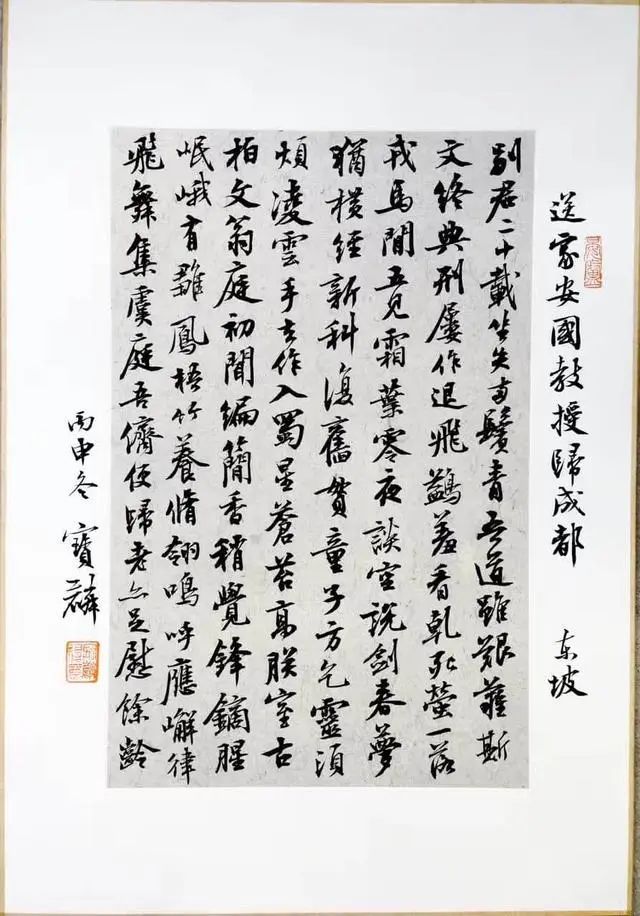 送家安國教授歸成都 东坡
別君二十載坐失兩鬢青吾道雖艱難斯
文終典刑屢作退飛鷁羞看乾死螢一落
戎馬間五見霜葉零夜談空說劍春夢
猶橫經新科復舊貫童子方乞靈須
煩凌雲手去作入蜀星蒼苔高朕室古
柏文翁庭初聞編簡香稍覺鋒鏑腥
岷峨有雛鳳梧竹養脩翎鳴呼應嶰律
飛舞集虞庭吾儕便歸老亦足慰餘齡
丙申冬 寶麟